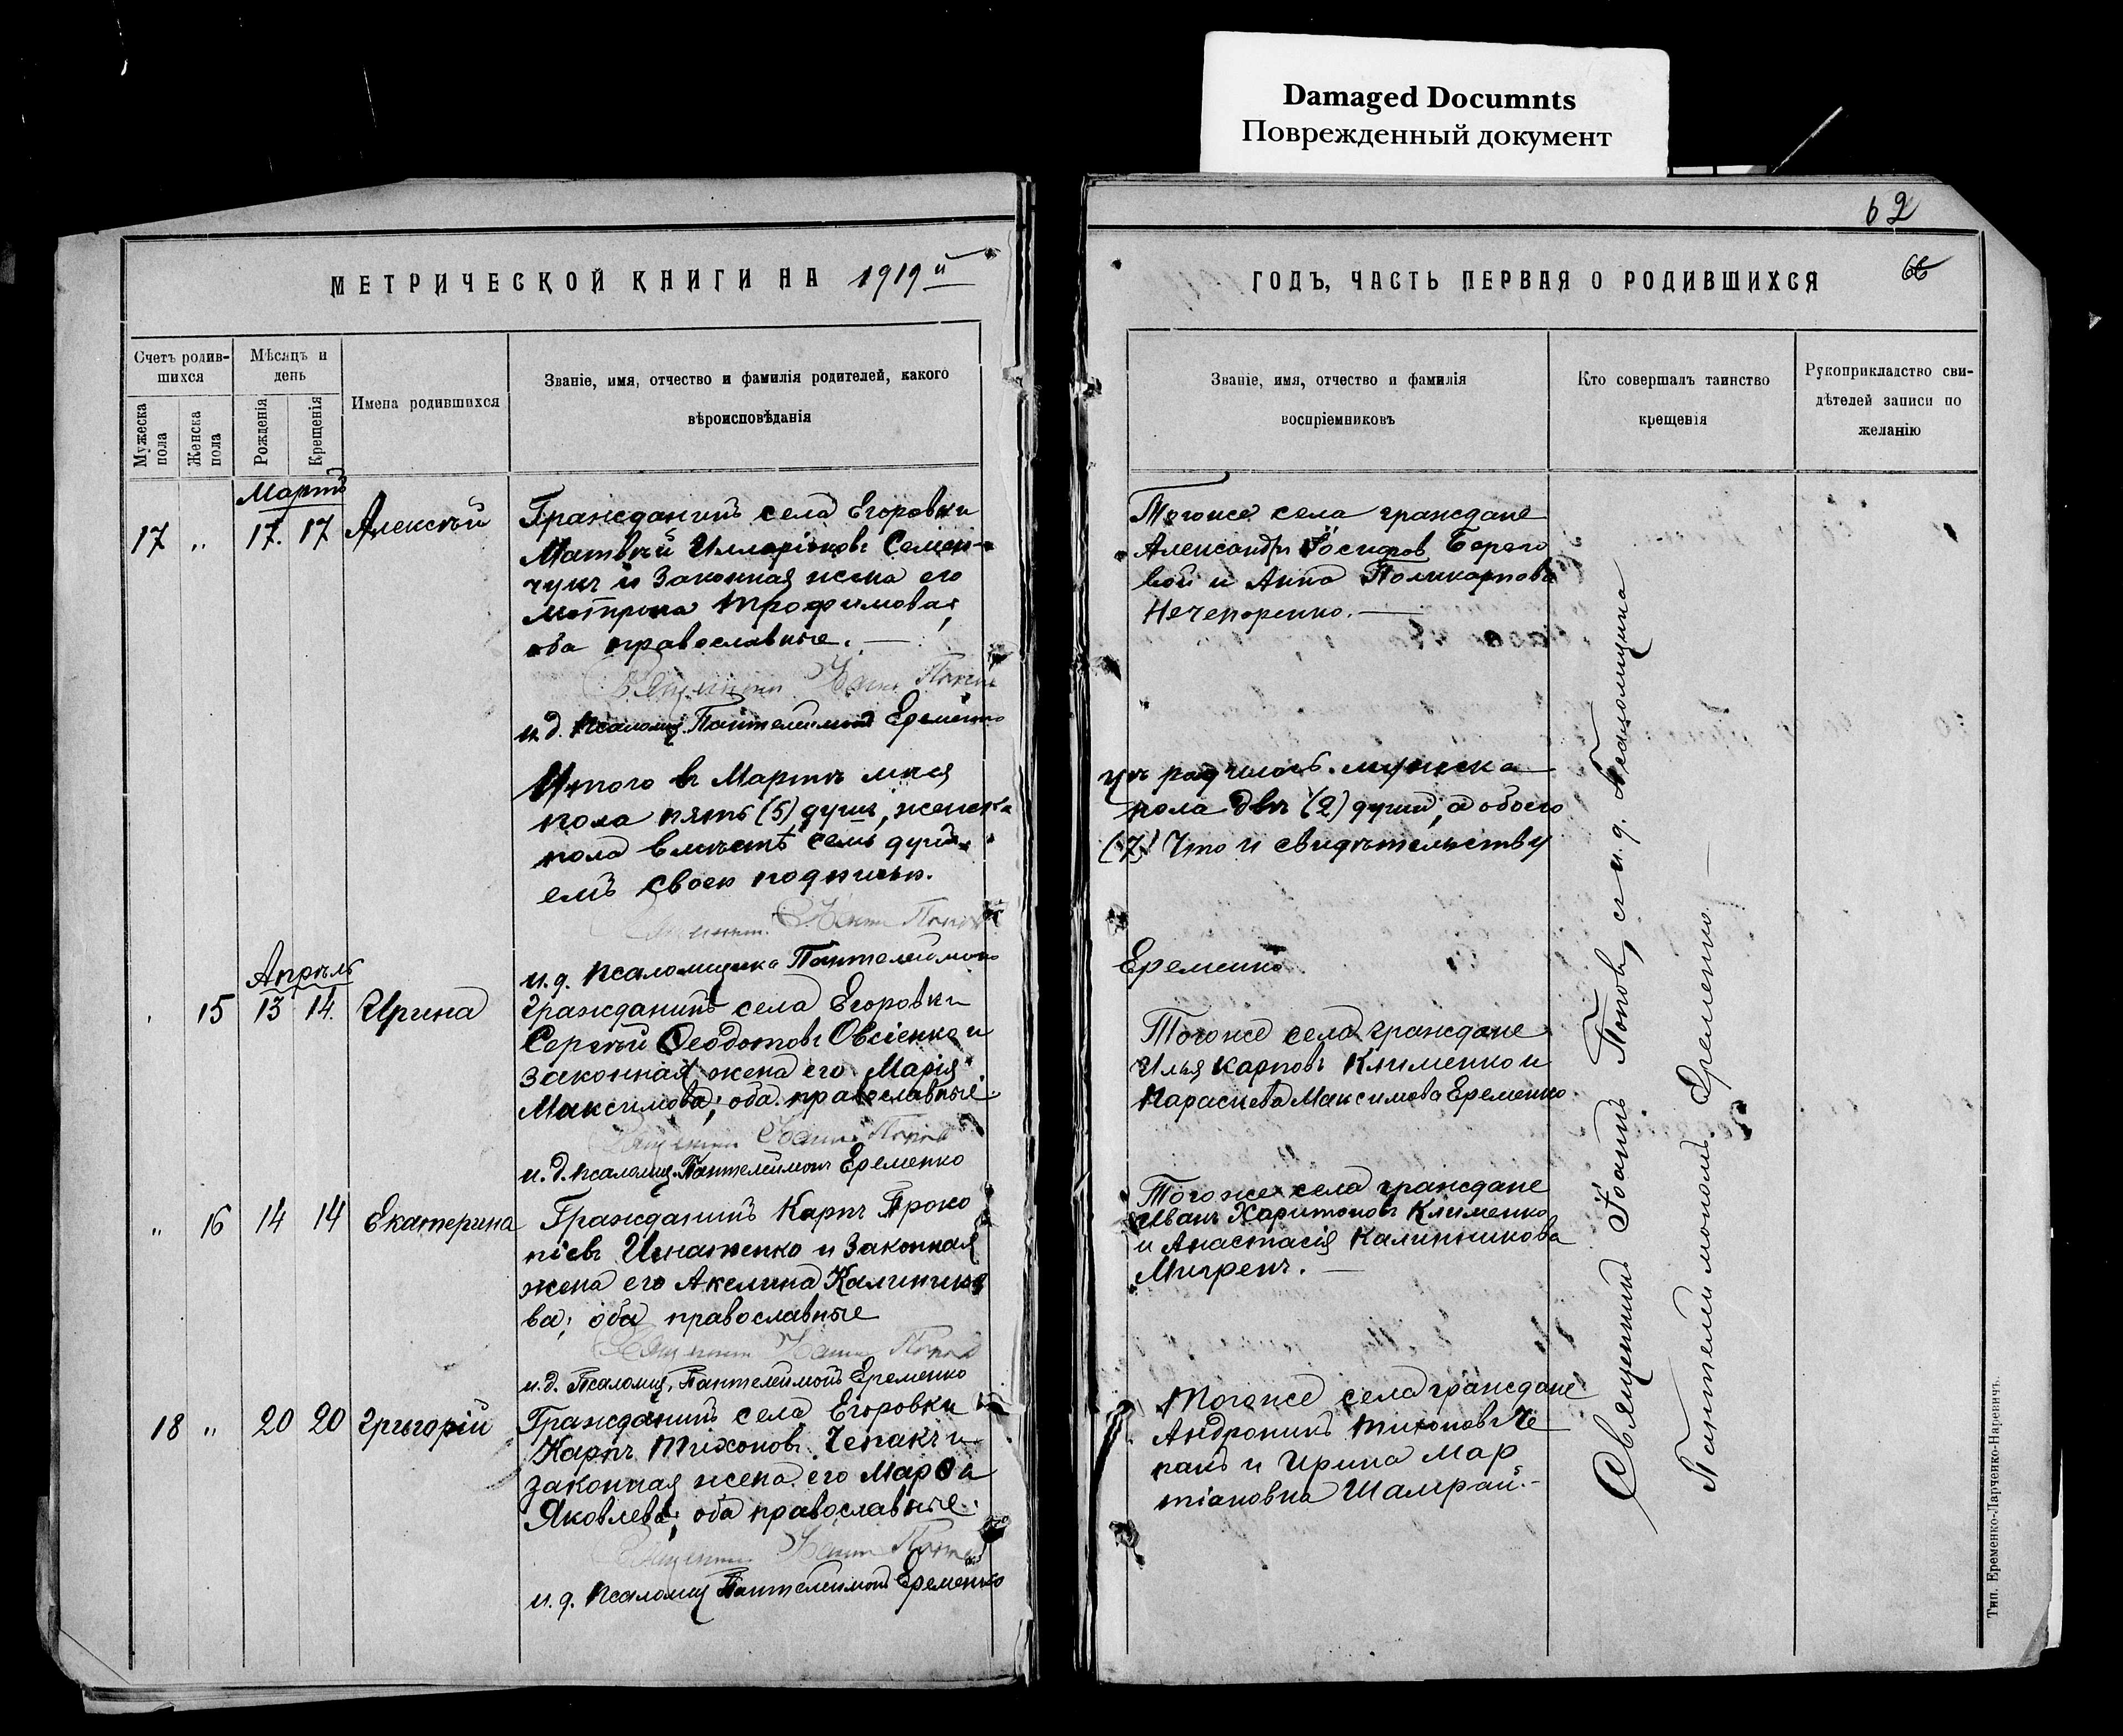 Damaged Documnts
Поврежденный документ
62
66
МЕТРИЧЕСКОЙ КНИГИ НА 1919й
Счетъ родив-
шихся
Мѣсяцъ и
день
Имена родившихся
Званіе, имя, отчество и фамилія родителей, какого
вѣроисповѣданія
Мужеска
пола
Женска
пола
Рожденія
Крещенія
Мартъ
17 " 17. 17 Алексѣй
Гражданинъ села Егоровки
Матвѣй Илларіоновъ Семен-
чукъ и законная жена его
Матрона Трофимова,
оба православные.
Священникъ Іоаннъ Поповъ
и.д. псаломщ. Пантелеимонъ Еременко
Итого въ Мартѣ мѣся
пола пять (5) душъ, женска
пола вмѣстѣ семь душъ
емъ своею подписью.
Священник. Іоаннъ Поповъ
и.д. псаломщика Пантелеимонъ
Апрѣль
15 13 14. Ирина
Гражданинъ села Егоровки
Сергѣй Ѳеодотовъ Овсіенко и
законная жена его Марія
Максимова; оба православные
Священникъ Іоаннъ Поповъ
и.д. псаломщ. Пантелеимонъ Еременко
" 16 14 14 Екатерина
Гражданинъ Карпъ Проко
піевъ Игнатенко и законная
жена его Акелина Калинико
ва; оба православные
Священникъ Іоаннъ Поповъ
и.д. Псаломщ. Пантелеимонъ Еременко
18 " 20 20 Григорій
Гражданинъ села Егоровки
Карпъ Тихоновъ Чепакъ и
законная жена его Марѳа
Яковлева; оба православные.
Священникъ Іоаннъ Поповъ
и.д. псаломщ Пантелеимонъ Еременко
ГОДЪ, ЧАСТЬ ПЕРВАЯ О РОДИВШИХСЯ
Званіе, имя, отчество и фамилія
воспріемниковъ
Кто совершалъ таинство
крещенія
Рукоприкладство сви-
дѣтелей записи по
желанію
Того же села граждане
Александръ Іосифов Берего
вой и Анна Поликарпова
Нечепоренко.
цѣ родилось мужеска
пола двѣ (2) души, а обоего
(7) Что и свидѣтельству
Еременко
Того же села граждане
Илья Карповъ Клименко и
Параскева Максимова Еременко
Того же села граждане
Иванъ Харитоновъ Клименко
и Анастасія Калинникова
Мигренъ.
Того же села граждане
Андроникъ Тихоновъ Че
пакъ и Ирина Мар
тіановна Шамрай.-
Священникъ Іоаннъ Поповъ, съ и.д. Псаломщика
Пантелеимономъ Еременко.
Тип. Еременко-Ларченко-Наревичъ.